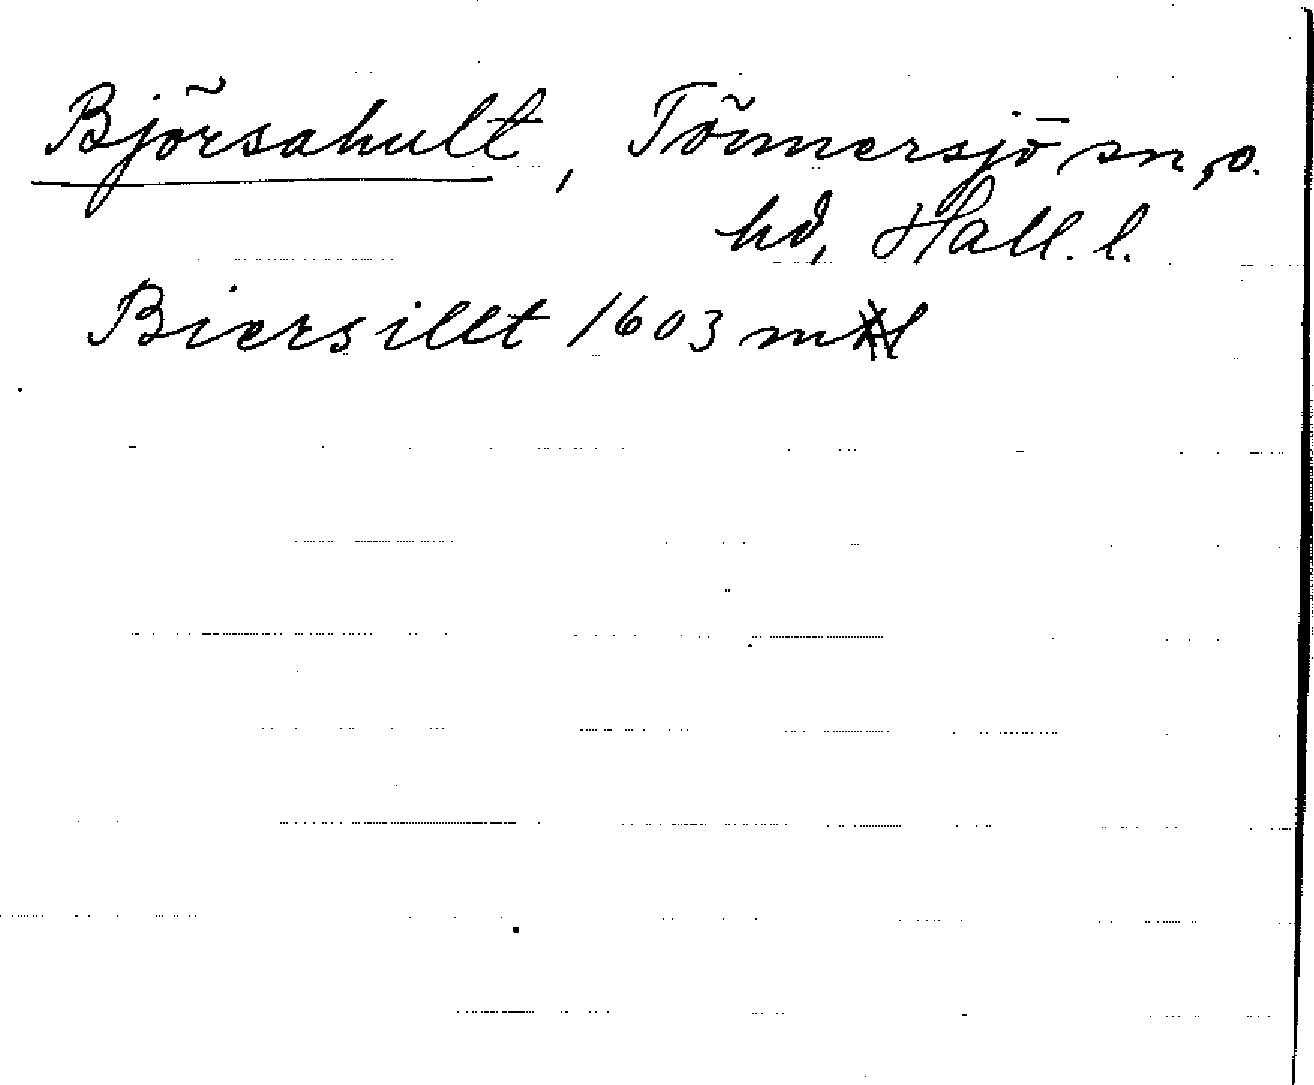 Björsahult, Tönnersjö sn, o.
hd, Hall. l.
Biersillt 1603